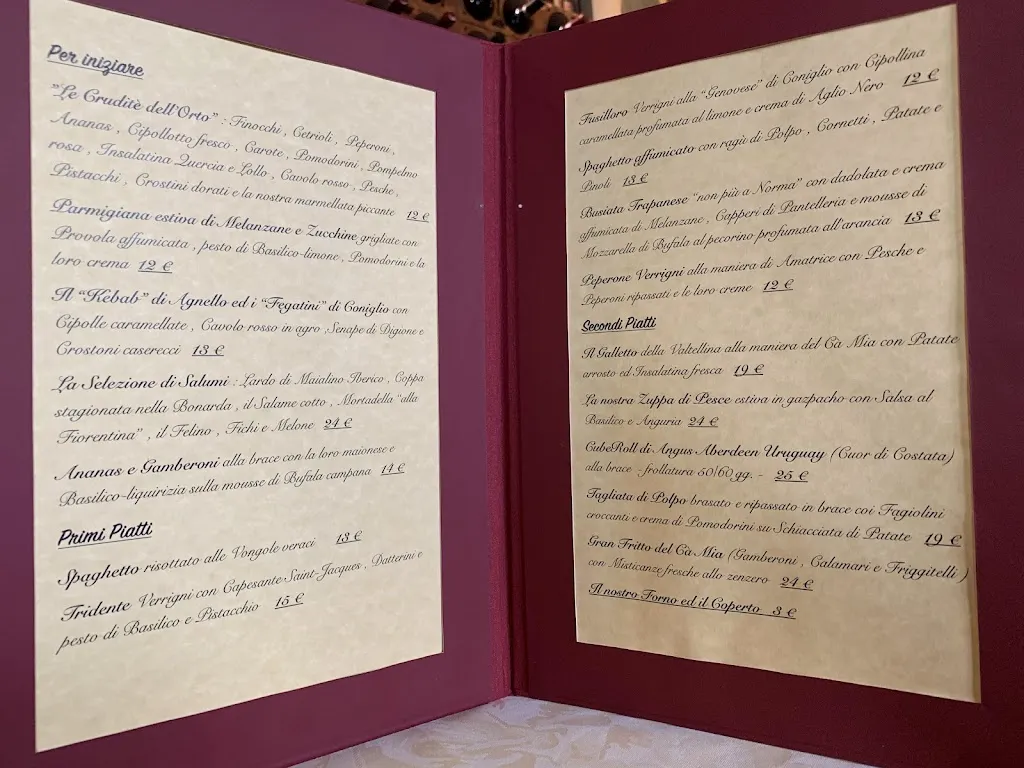 Per iniziare
"Le Cruditè dell'Orto" : Finocchi , Cetrioli , Peperoni ,
Ananas , Cipollotto fresco , Carote , Pomodorini , Pompelmo
rosa , Insalatina Quercia e Lollo , Cavolo rosso , Pesche ,
Pistacchi , Crostini dorati e la nostra marmellata piccante 12 €
Parmigiana estiva di Melanzane e Zucchine grigliate con
Provola affumicata , pesto di Basilico-limone , Pomodorini e la
loro crema 12 €
Il "Kebab" di Agnello ed i "Fegatini" di Coniglio con
Cipolle caramellate , Cavolo rosso in agro ,Senape di Digione e
Crostoni caserecci 13 €
La Selezione di Salumi : Lardo di Maialino Iberico , Coppa
stagionata nella Bonarda , il Salame cotto , Mortadella "alla
Fiorentina" , il Felino , Fichi e Melone 24 €
Ananas e Gamberoni alla brace con la loro maionese e
Basilico-liquirizia sulla mousse di Bufala campana 14 €
Primi Piatti
Spaghetto risottato alle Vongole veraci 13 €
Tridente Verrigni con Capesante Saint-Jacques , Datterini e
pesto di Basilico e Pistacchio 15 €
Fusilloro Verrigni alla "Genovese" di Coniglio con Cipollina
caramellata profumata al limone e crema di Aglio Nero 12 €
Spaghetto affumicato con ragù di Polpo , Cornetti , Patate e
Pinoli 13 €
Busiata Trapanese "non più a Norma" con dadolata e crema
affumicata di Melanzane , Capperi di Pantelleria e mousse di
Mozzarella di Bufala al pecorino profumata all'arancia 13 €
Peperone Verrigni alla maniera di Amatrice con Pesche e
Peperoni ripassati e le loro creme 12 €
Secondi Piatti
Il Galletto della Valtellina alla maniera del Cà Mia con Patate
arrosto ed Insalatina fresca 19 €
La nostra Zuppa di Pesce estiva in gazpacho con Salsa al
Basilico e Anguria 24 €
CubeRoll di Angus Aberdeen Uruguay (Cuor di Costata)
alla brace - frollatura 50/60 gg. - 25 €
Tagliata di Polpo brasato e ripassato in brace coi Fagiolini
croccanti e crema di Pomodorini su Schiacciata di Patate 19 €
Gran Fritto del Cà Mia (Gamberoni , Calamari e Friggitelli )
con Misticanze fresche allo zenzero 24 €
Il nostro Forno ed il Coperto 3 €